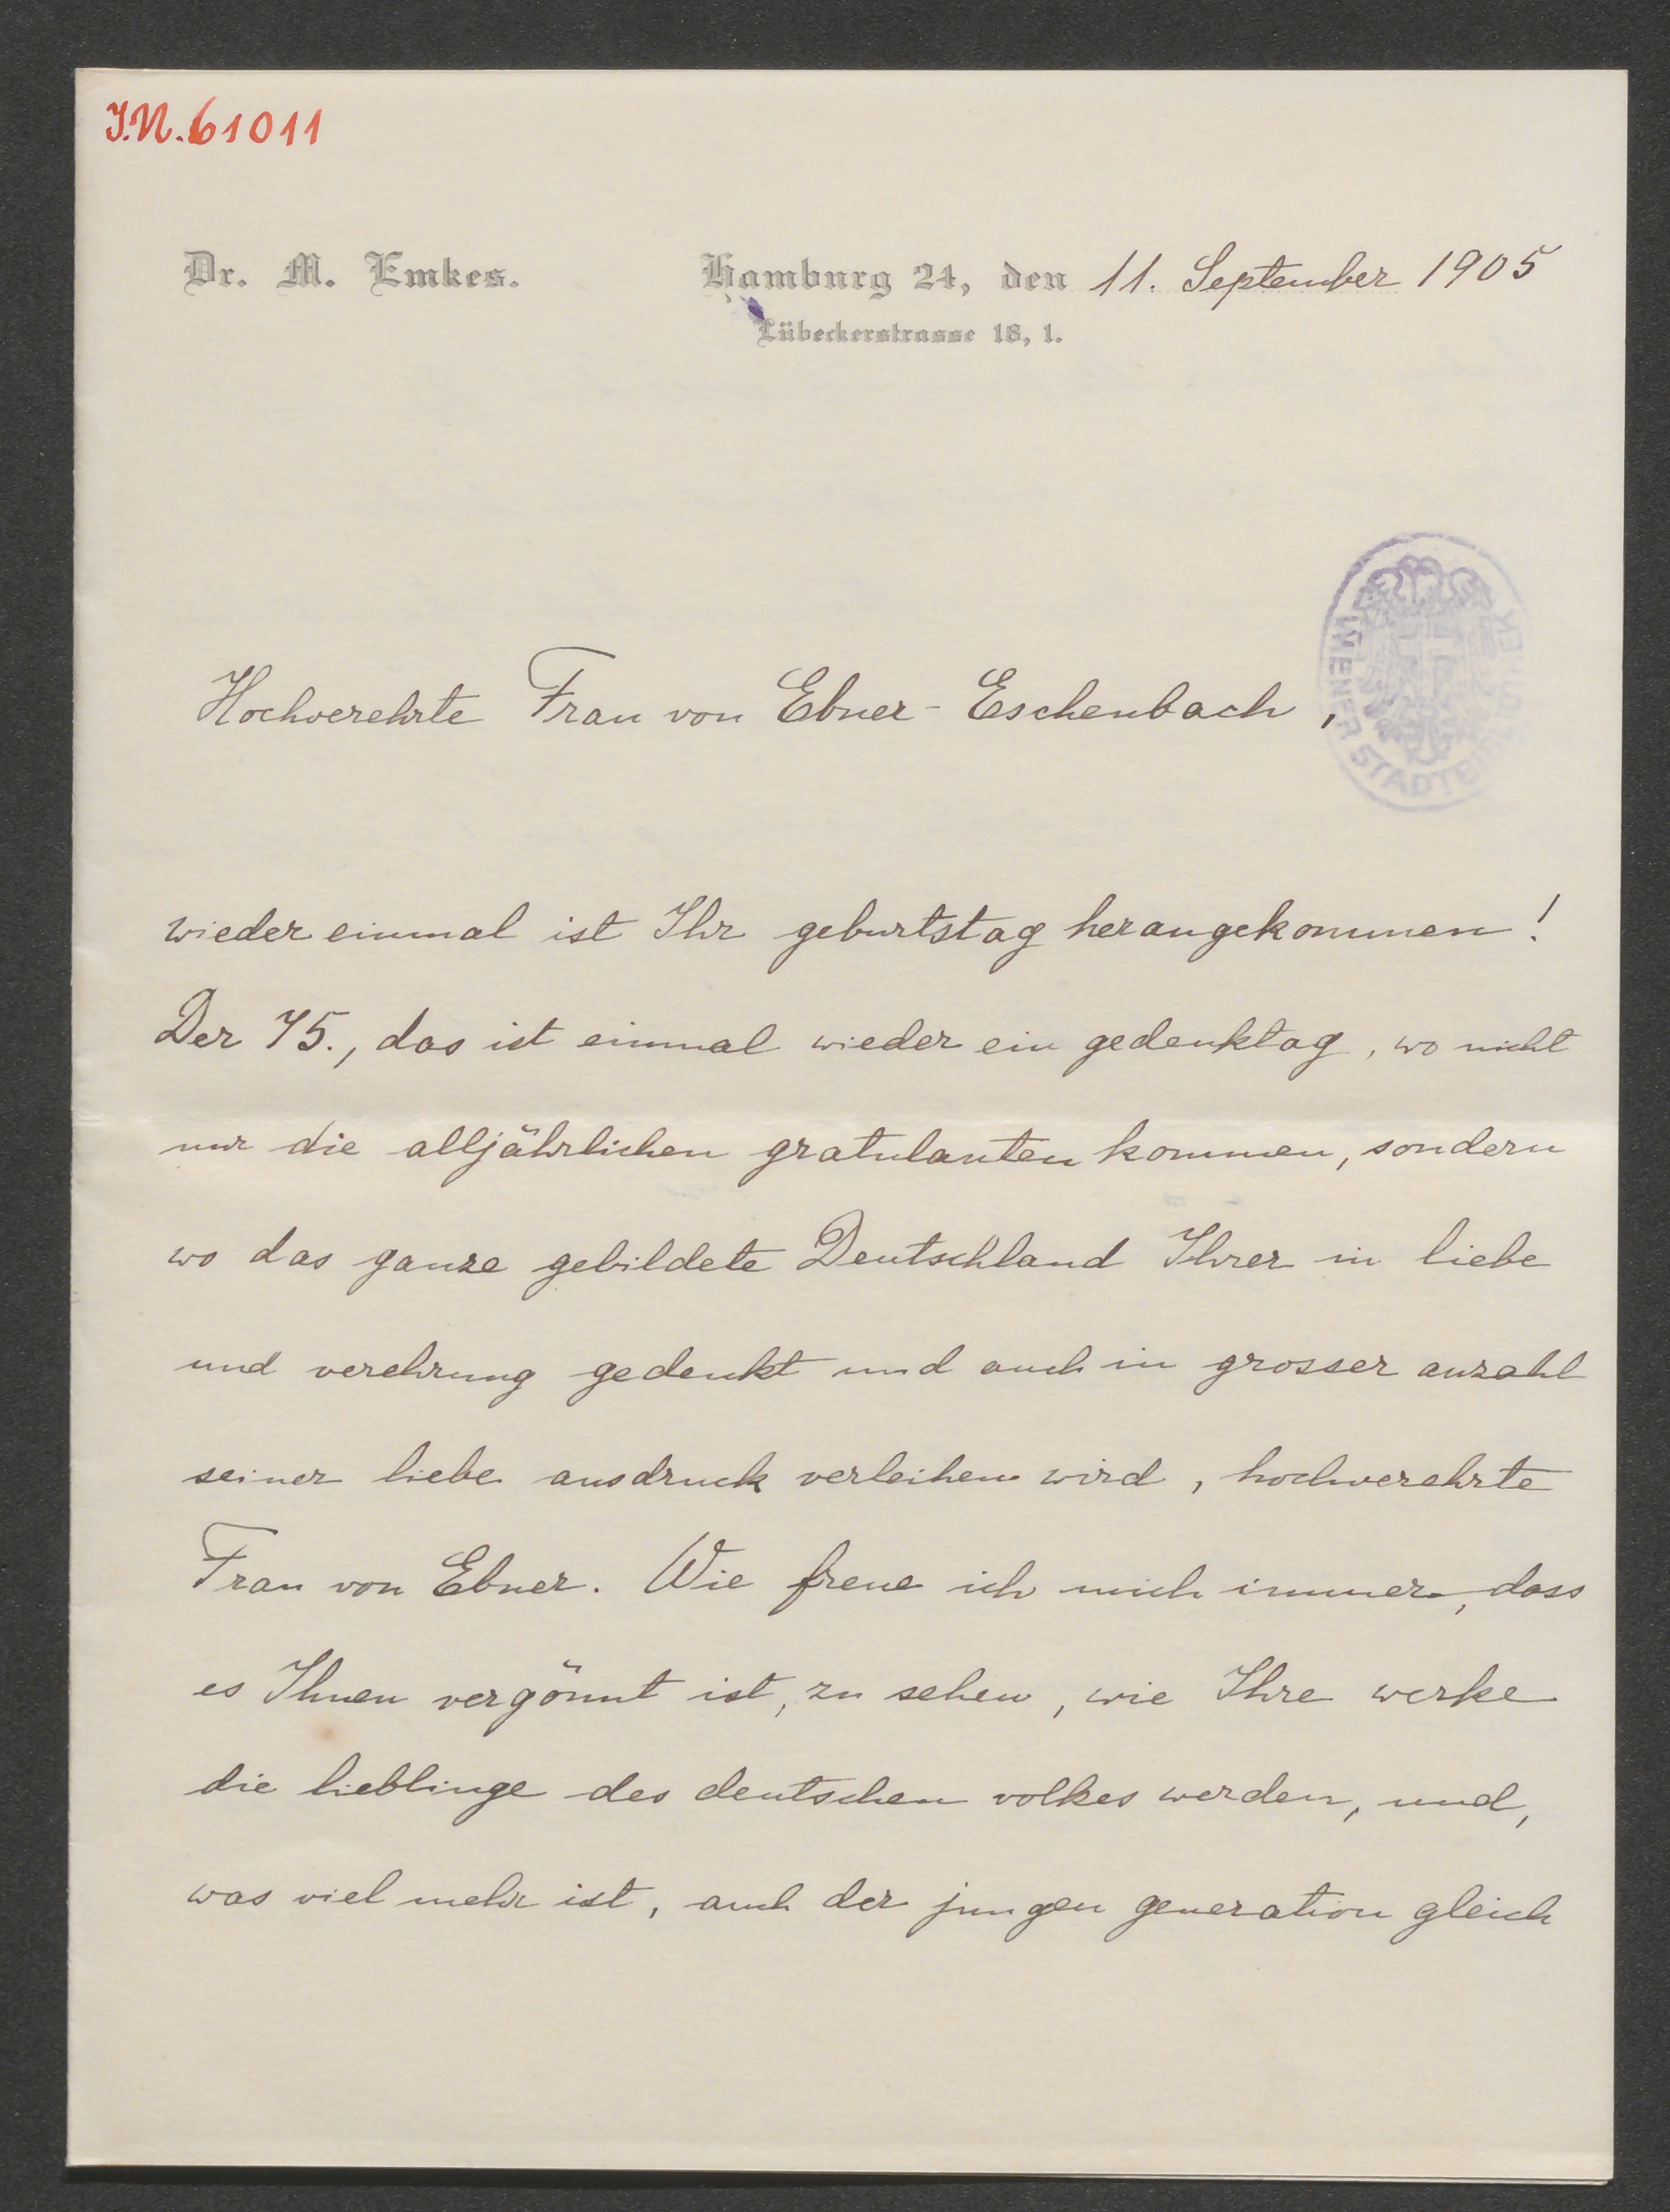 J.N. 61011
Dr. M. Emkes.
Hamburg 24, den 11. September 1905
Lübeckerstrasse 18, 1.
WIENER STADTBIBLIOTHEK
Hochverehrte Frau von Ebner-Eschenbach,
wieder einmal ist Ihr geburtstag herangekommen!
Der 75., das ist einmal wieder ein gedenktag, wo nicht
nur die alljährlichen gratulanten kommen, sondern
wo das ganze gebildete Deutschland Ihrer in liebe
und verehrung gedenkt und auch in grosser anzahl
seiner liebe ausdruck verleihen wird, hochverehrte
Frau von Ebner. Wie freue ich mich immer, dass
es Ihnen vergönnt ist, zu sehen, wie Ihre werke
die lieblinge des deutschen volkes werden, und,
was viel mehr ist, auch der jungen generation gleich